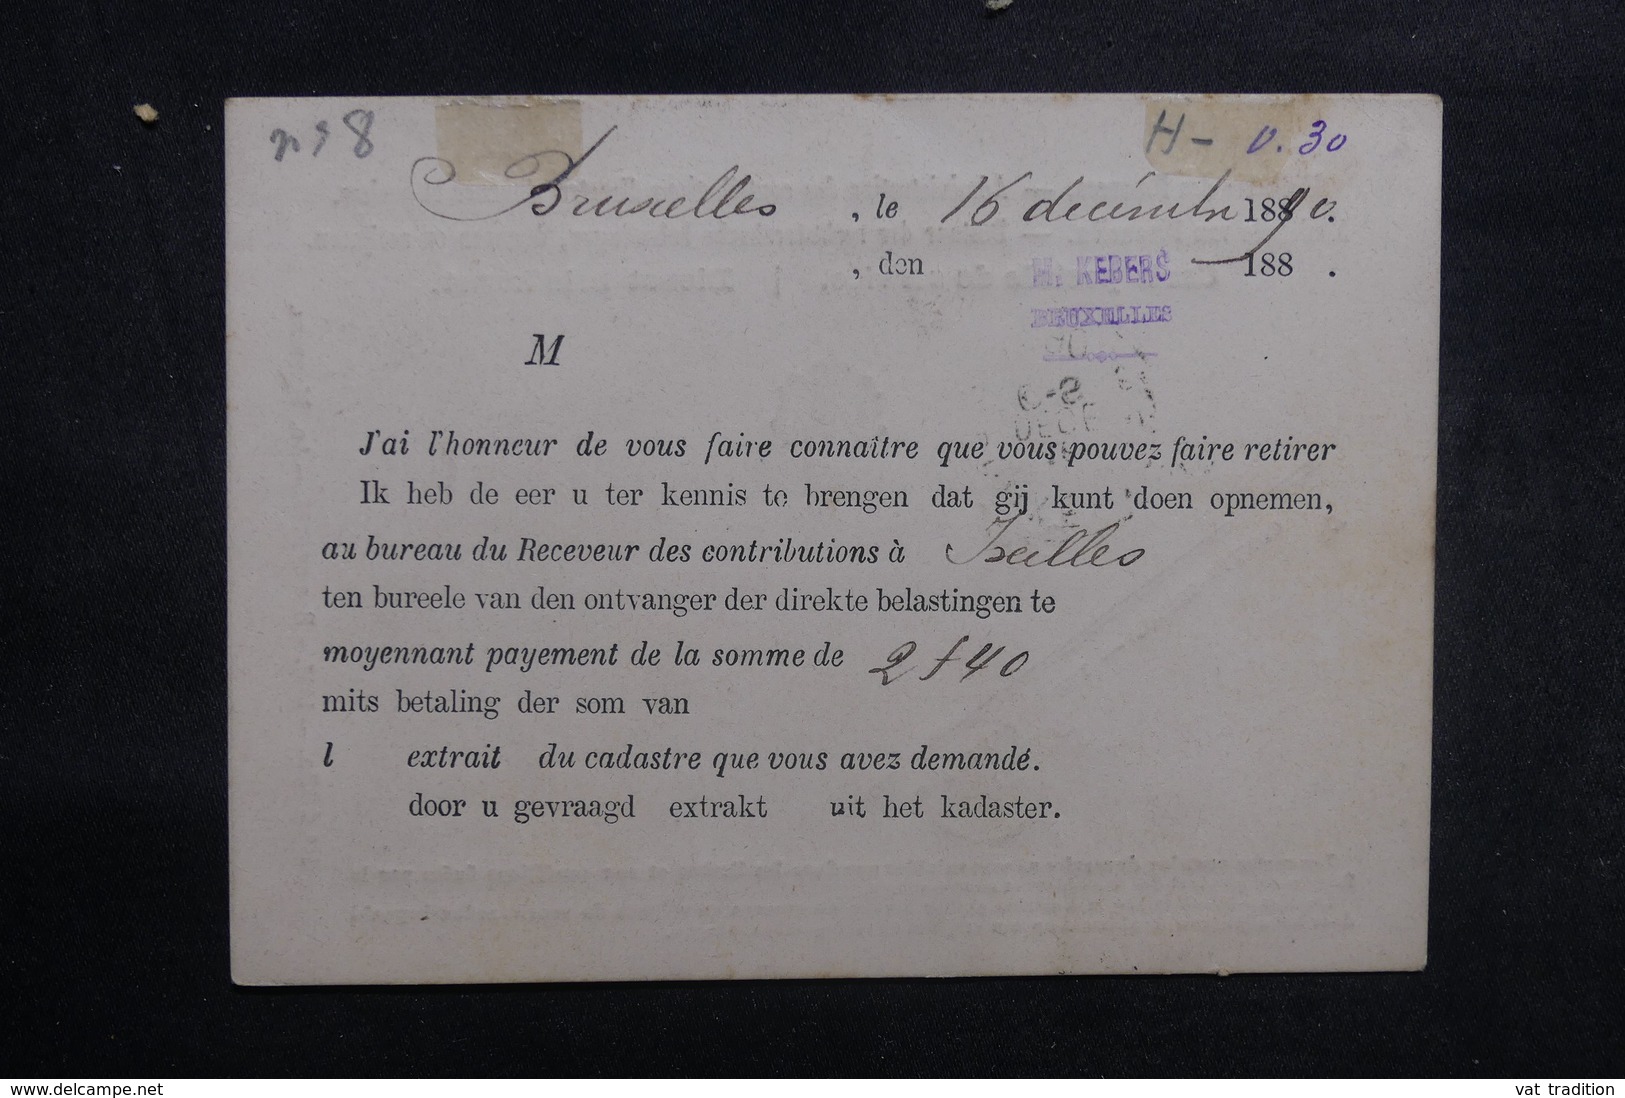 nº 8
H - 0.30
Bruxelles, le 16 décembre 1890.
, den 188 .
H. KEBERS
BRUXELLES
M
J'ai l'honneur de vous faire connaître que vous pouvez faire retirer
Ik heb de eer u ter kennis te brengen dat gij kunt doen opnemen,
au bureau du Receveur des contributions à Ixelles
ten bureele van den ontvanger der direkte belastingen te
moyennant payement de la somme de 2 f 40
mits betaling der som van
l extrait du cadastre que vous avez demandé.
door u gevraagd extrakt uit het kadaster.
www.delcampe.net
vat tradition